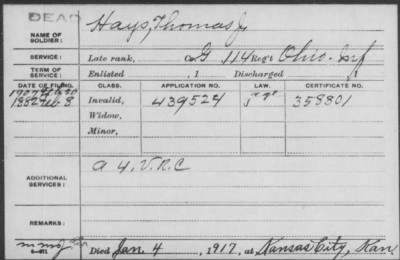 DEAD
NAME OF SOLDIER: Hays, Thomas J.
SERVICE: Late rank, Co. G 114 Reg't Ohio Inf
TERM OF SERVICE: Enlisted , 1 Discharged , 1
DATE OF FILING. CLASS. APPLICATION NO. LAW. CERTIFICATE NO.
1882 Feb. 8 Invalid, 439524 358801
Widow,
Minor,
ADDITIONAL SERVICES: A 4, V.R.C
REMARKS:
Died Jan. 4, 1917, at Kansas City, Kan